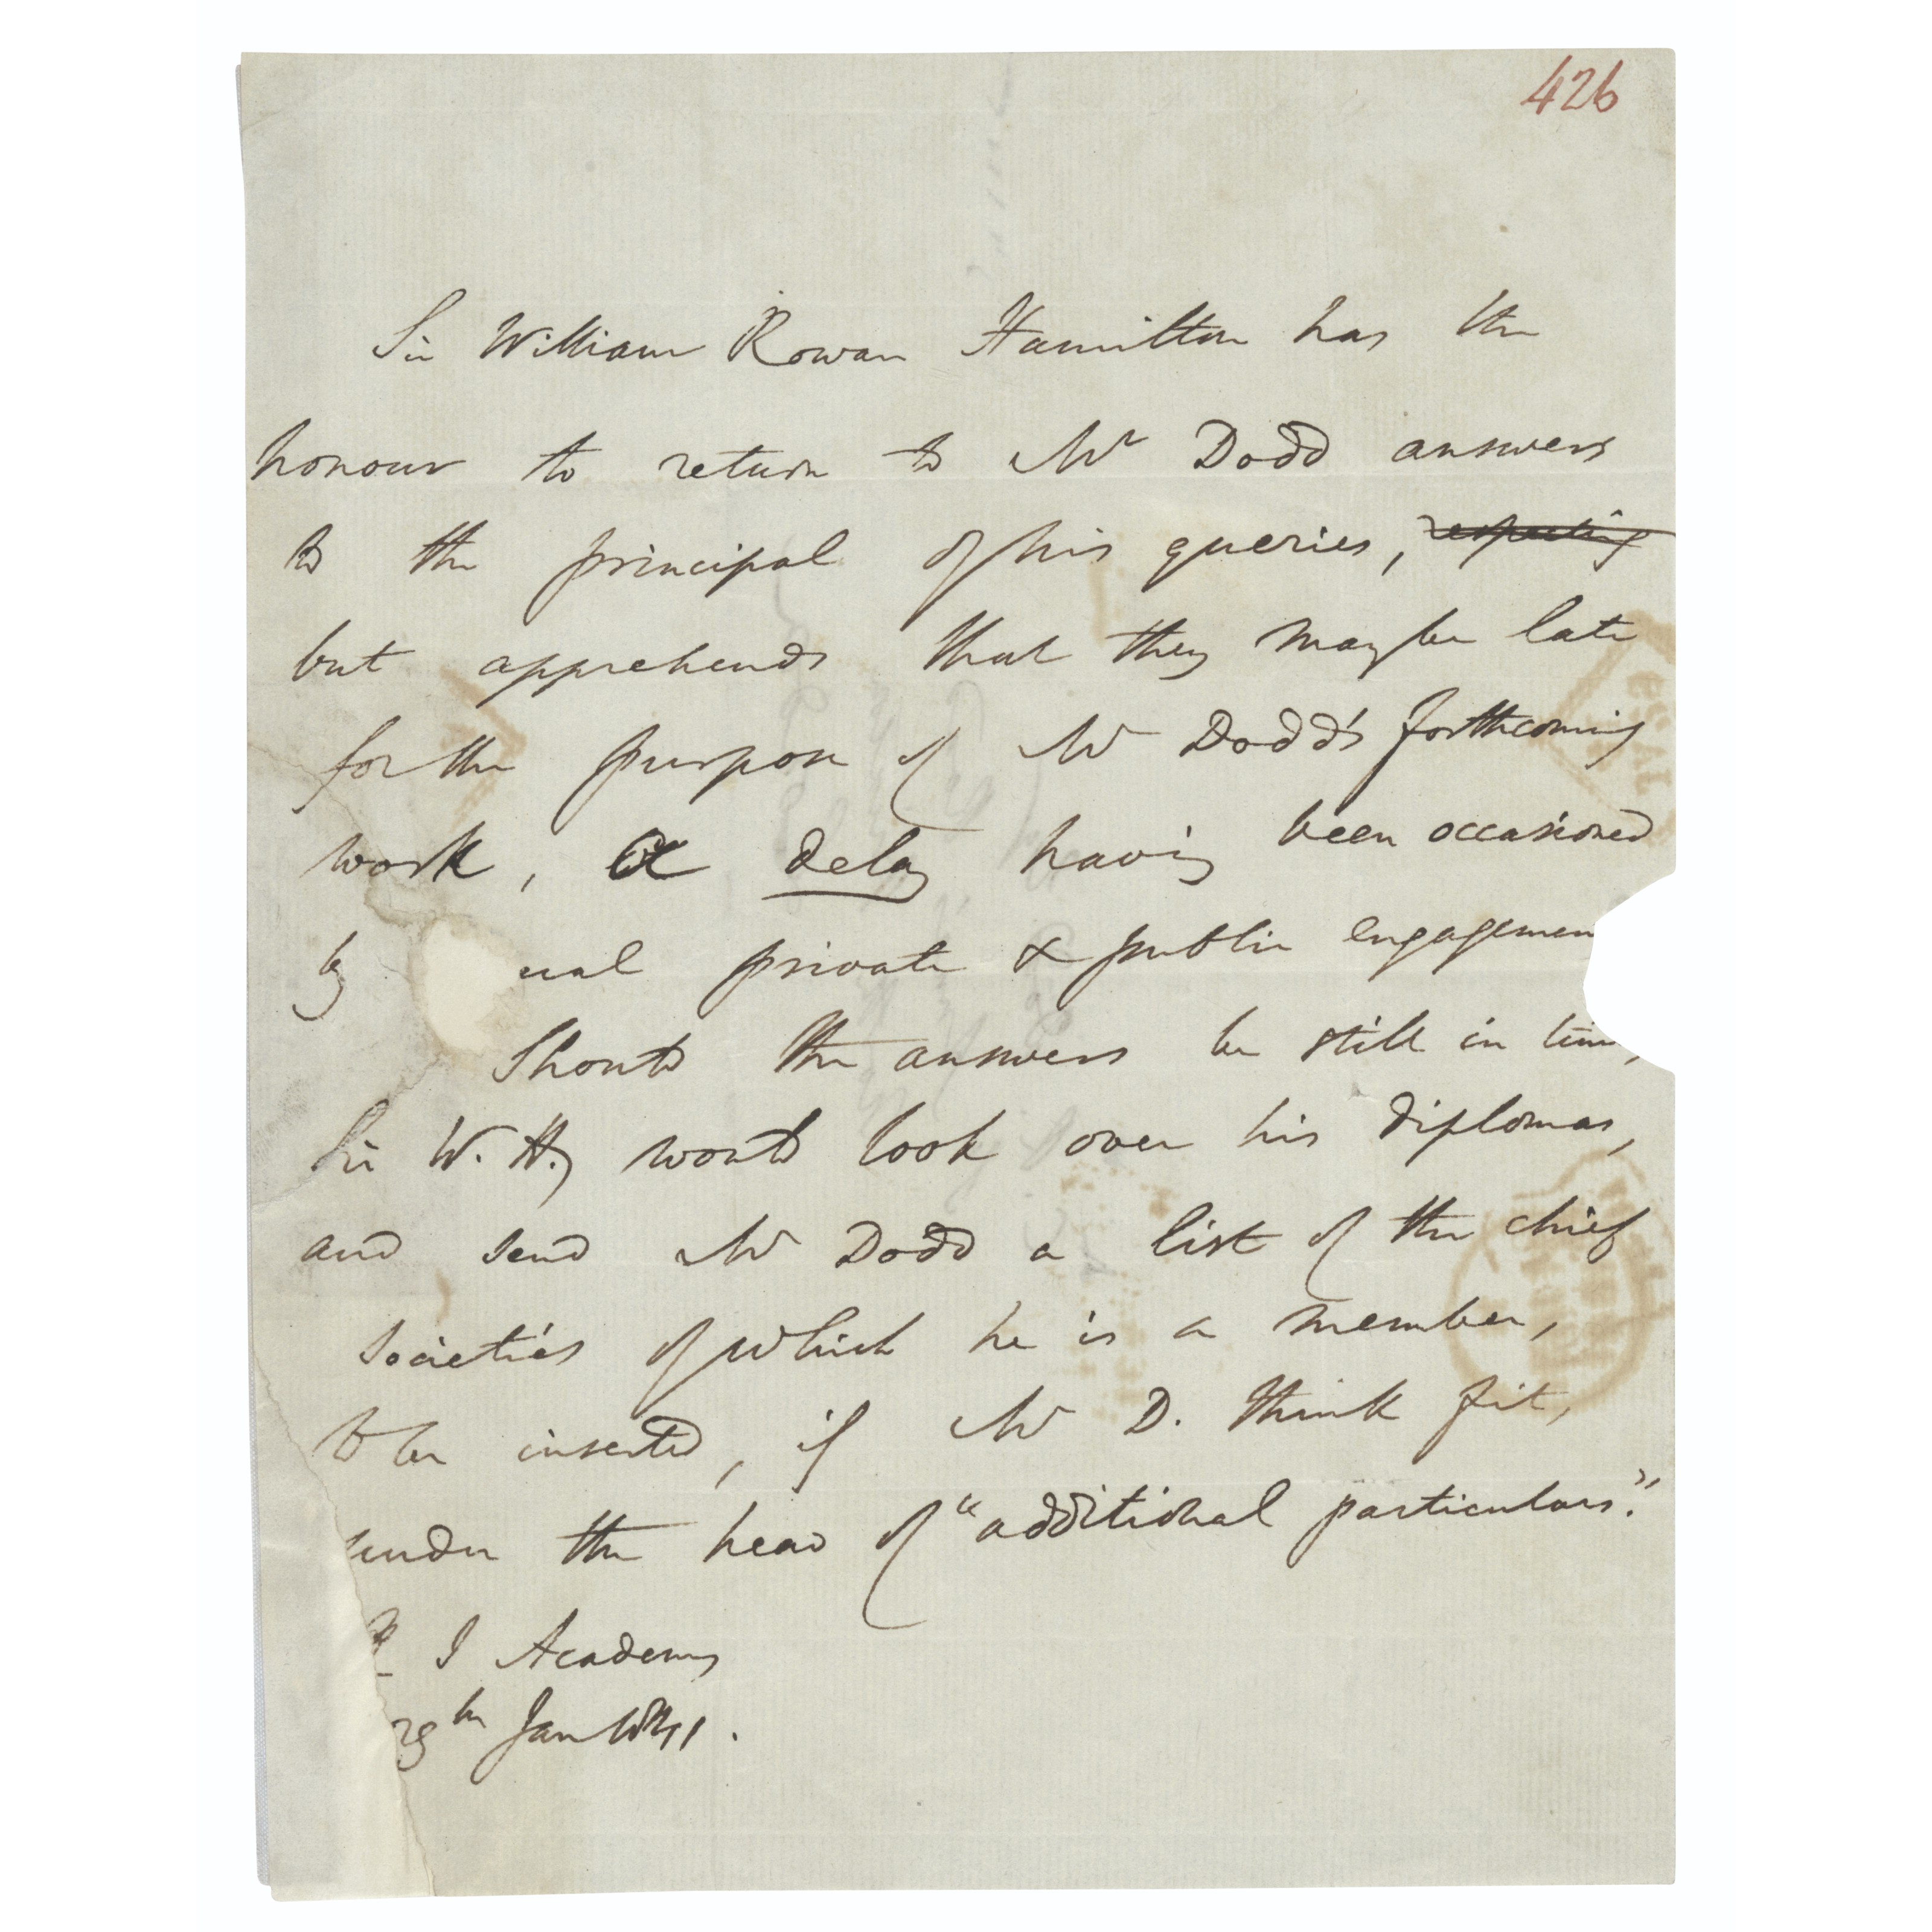 426
Sir William Rowan Hamilton has the
honour to return to Mr Dodd answers
to the principal of his queries, respecting
but apprehends that they may be late
for the purpose of Mr Dodd's forthcoming
work, a delay having been occasioned
by ual private & public engagemen
Should the answers be still in time,
Sir W. H. would look over his diplomas,
and send Mr Dodd a list of the chief
societies of which he is a member,
to be inserted, if Mr D. think fit,
under the head of "additional particulars."
R I Academy
Jan 1841.